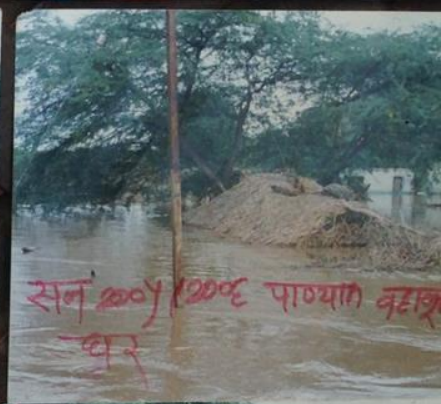 सन २००५/२००६ पाण्यात
घर